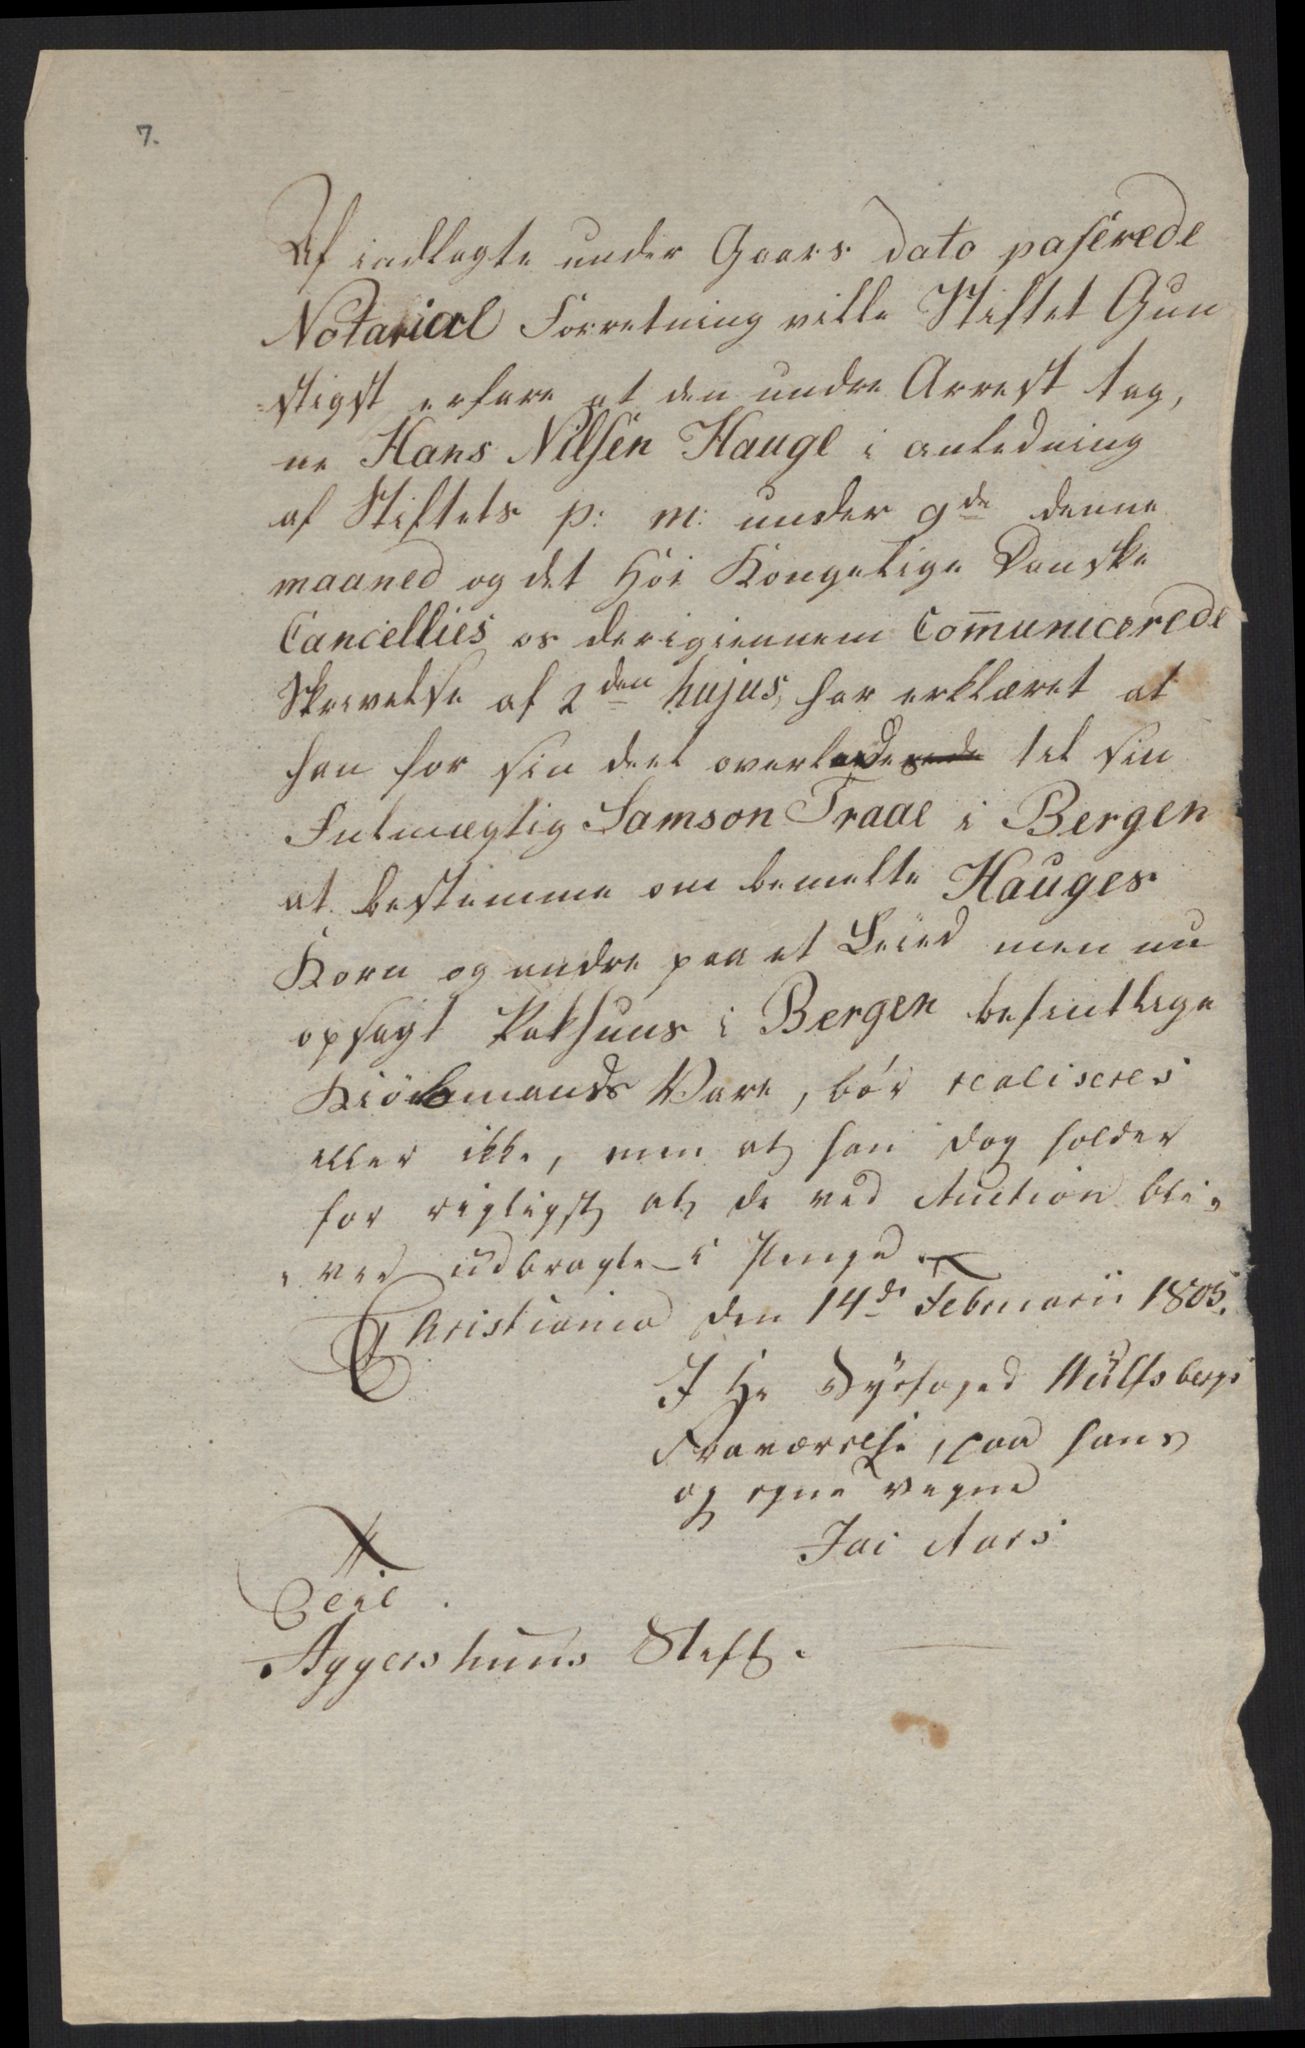 7.
Af indlagte under Gaars dato paserede
Notarial Forretning ville Stiftet Gun
stigst erfare at den under Arrest tag,
ne Hans Nilsen Hauge i anledning
af Stiftets p: m: under 9de denne
maaned og det Höi Kongelige Danske
Cancellies os derigiennem Com̄unicerede
Skrivelse af 2den hujus, har erklæret at
han for sin deel overlader til sin
Fulmægtig Samson Traae i Bergen
at bestemme om bemelte Hauges
Korn og andre paa et Leied men nu
opsagt Pakhuus i Bergen befintlige
Kiöbmands Vare, bör realiseres
eller ikke, men at han dog holder
for rigtigst at de ved Auction bli,
, ver udbragte i Penge.
Christiania den 14de Februarii 1805.
I Hr Byefoged Wulfsbergs
Fraværelse, paa hans
og egne vegne
Jac Aars
Til
Aggershuus Stift.